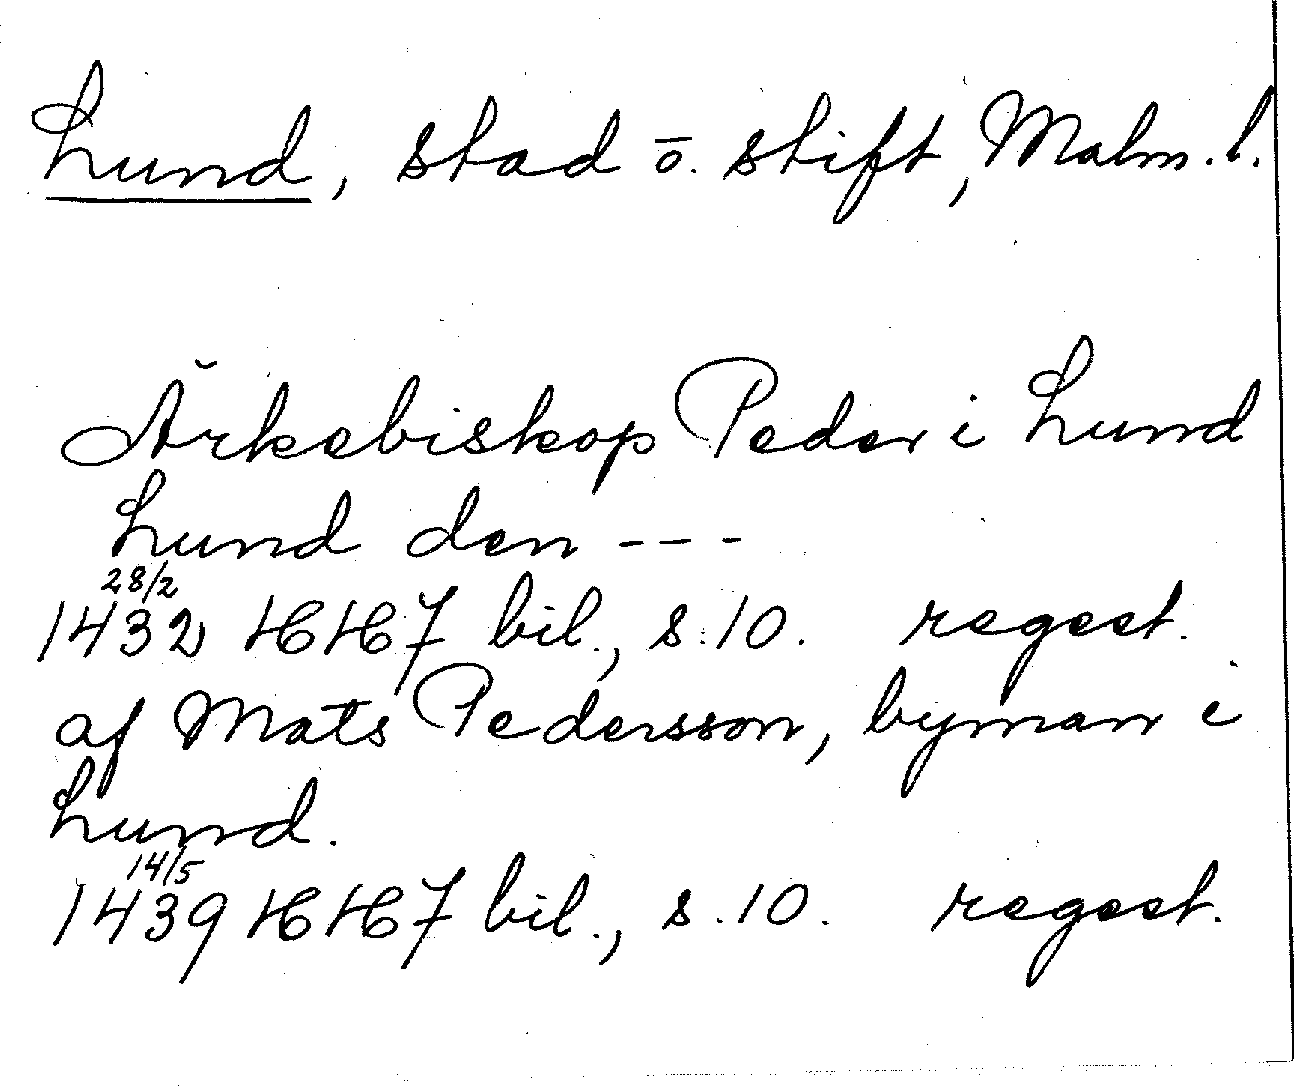 Lund, stad o. stift, Malm. l.
Ärkebiskop Peder i Lund
Lund den ---
28/2
1432 HH 7 bil., s. 10. regest.
af Mats Pedersson, byman i
Lund.
14/5
1439 HH 7 bil., s. 10. regest.